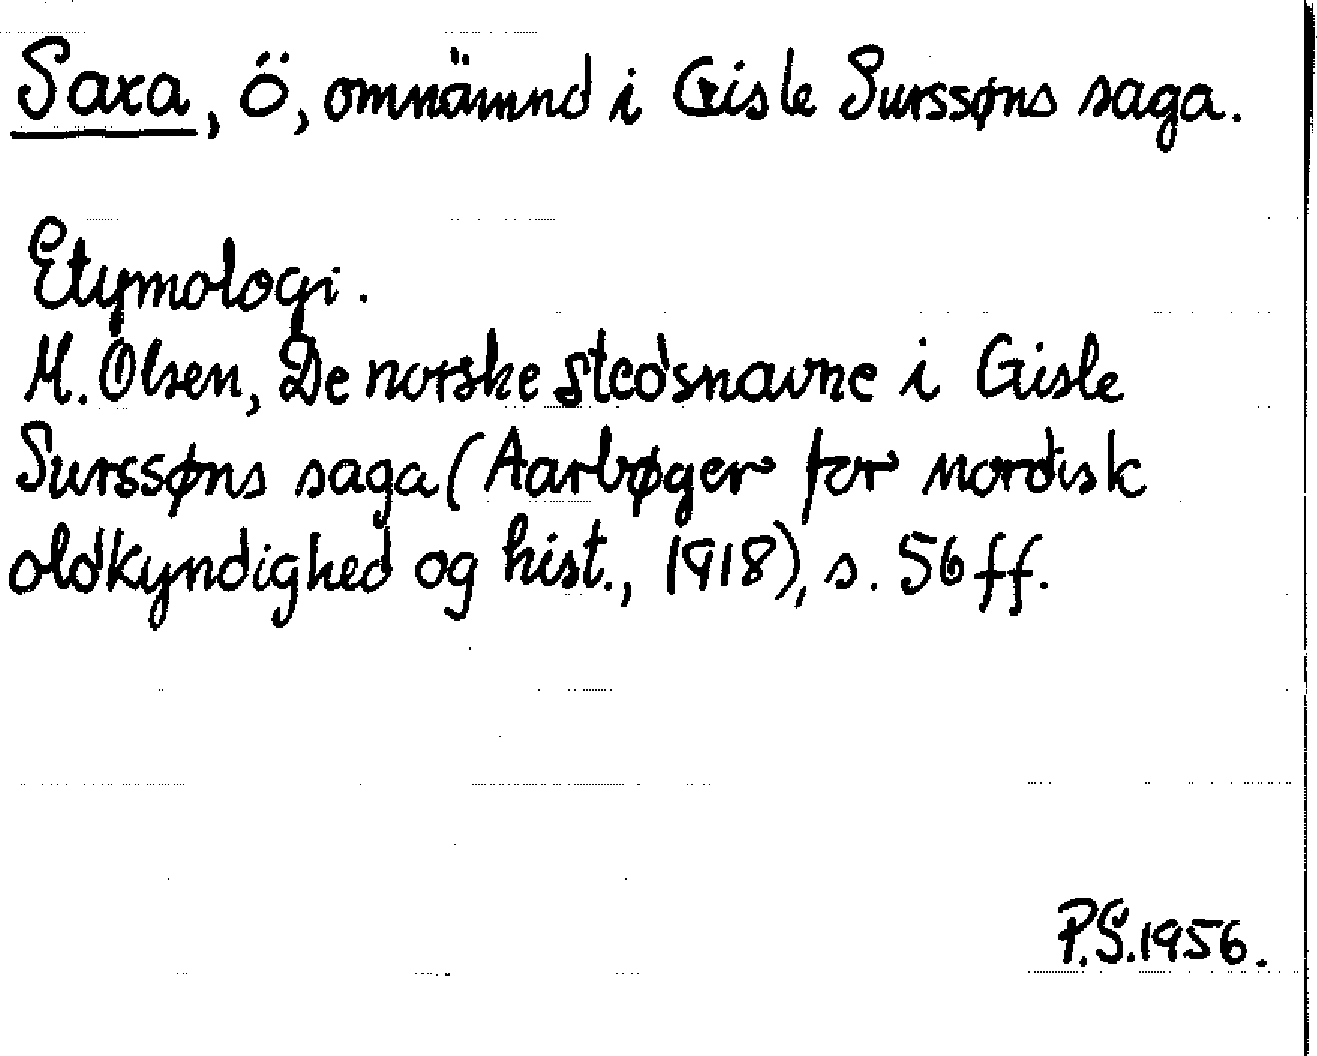 Saxa, ö, omnämnd i Gisle Surssøns saga.
Etymologi.
M. Olsen, De norske stedsnavne i Gisle
Surssøns saga (Aarbøger for nordisk
oldkyndighed og hist., 1918), s. 56 ff.
P.S. 1956.